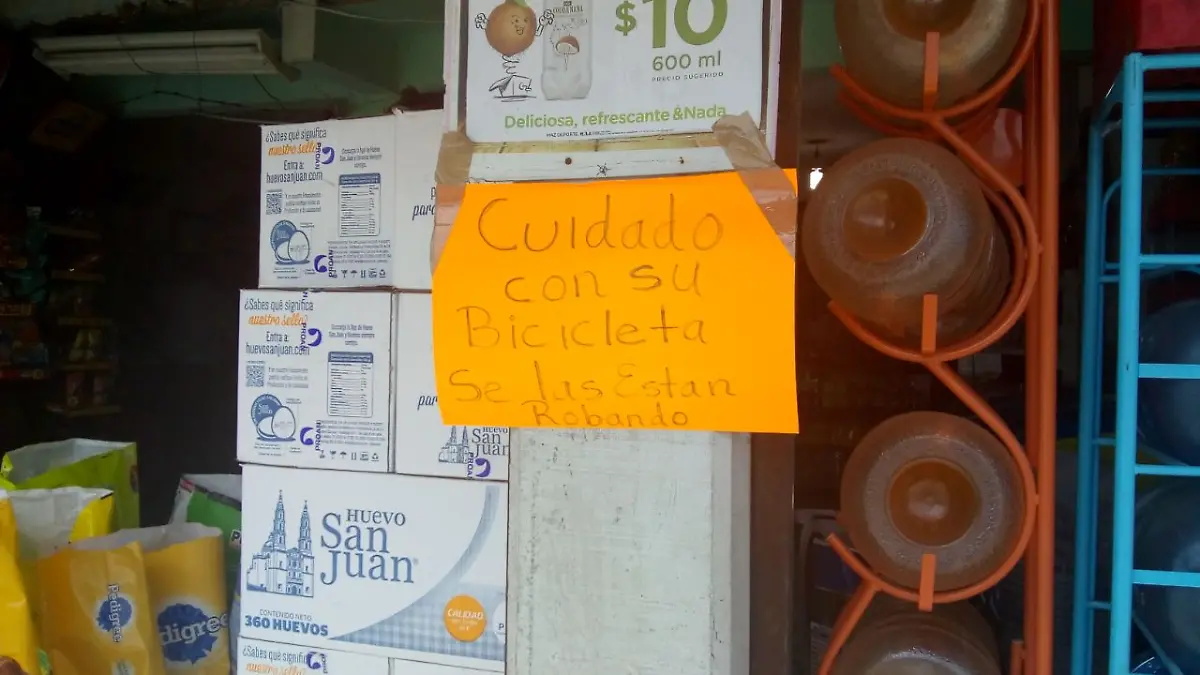 $10
600 ml
PRECIO SUGERIDO
Deliciosa, refrescante &Nada
Cuidado
con su
Bicicleta
Se las Estan
Robando
¿Sabes qué significa
nuestro sello?
Entra a:
huevosanjuan.com
PROAN
¿Sabes qué significa
nuestro sello?
Entra a:
huevosanjuan.com
PROAN
HUEVO
San
Juan
CONTENIDO NETO
360 HUEVOS
CALIDAD
San
Juan
¿Sabes qué signific
nuestro sello?
Pedigree
digree